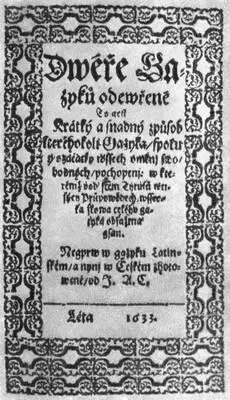 Dwéře Ga-
zyků odewřené
To gest
Krátký a snadný způsob
kteréhokoli Gazyka / spolu
y s začátky wssech umění swo-
bodných / pochopenj: w kte-
rémž pod
Průpowědech, wssec-
ka slowa celého ga-
zyka obsažena
gsau.
Neprw w gazyku Latin-
ském / a nynj w Českém zhoto-
wené / od J. A. C.
Léta 1633.